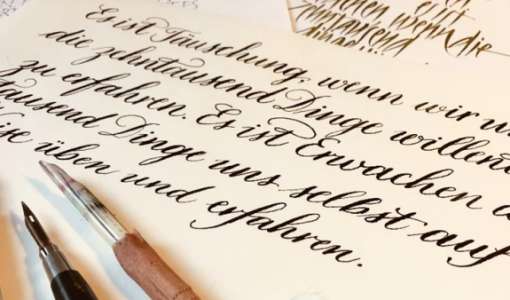 Es ist Täuschung, wenn wir
die zehntausend Dinge
zu erfahren. Es ist Erwachen
tausend Dinge uns selbst auf
üben und erfahren.
wenn die
zehntausend